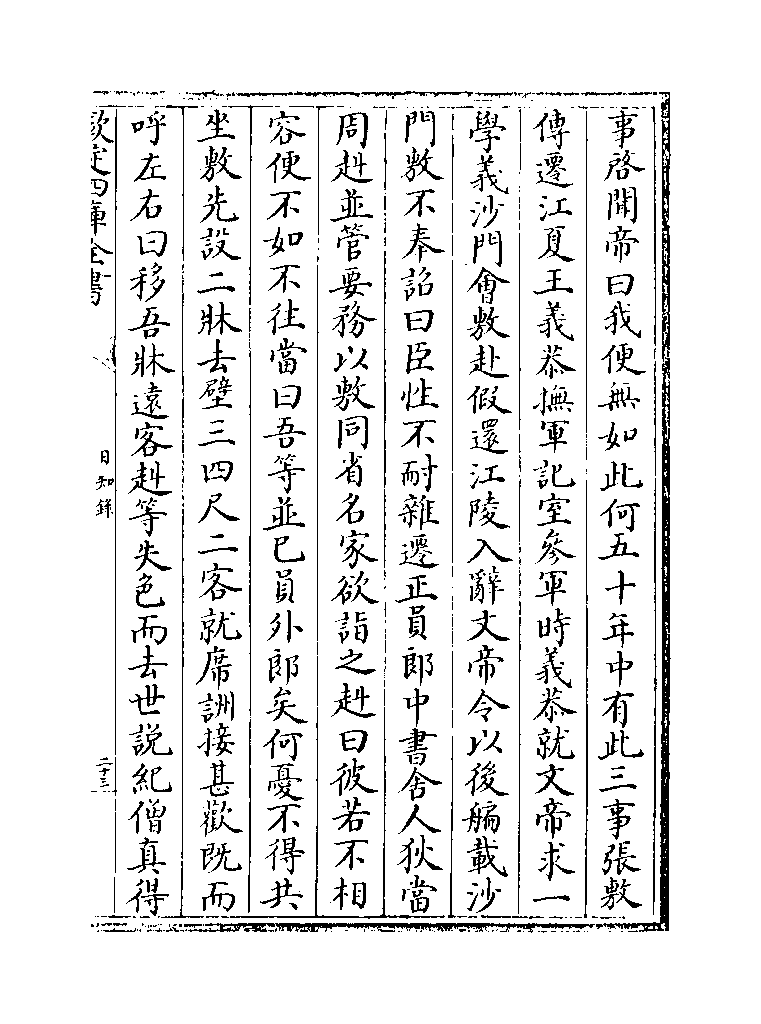 事啓聞帝曰我便無如此何五十年中有此三事張敷
傳遷江夏王義恭撫軍記室參軍時義恭就文帝求一
學義沙門會敷赴假還江陵入辭文帝令以後艑載沙
門敷不奉詔曰臣性不耐雜遷正員郎中書舍人狄當
周赳並管要務以敷同省名家欲詣之赳曰彼若不相
容便不如不往當曰吾等並已員外郎矣何憂不得共
坐敷先設二牀去壁三四尺二客就席詶接甚歡既而
呼左右曰移吾牀遠客赳等失色而去世說紀僧真得
欽定四庫全書
日知錄
二十三